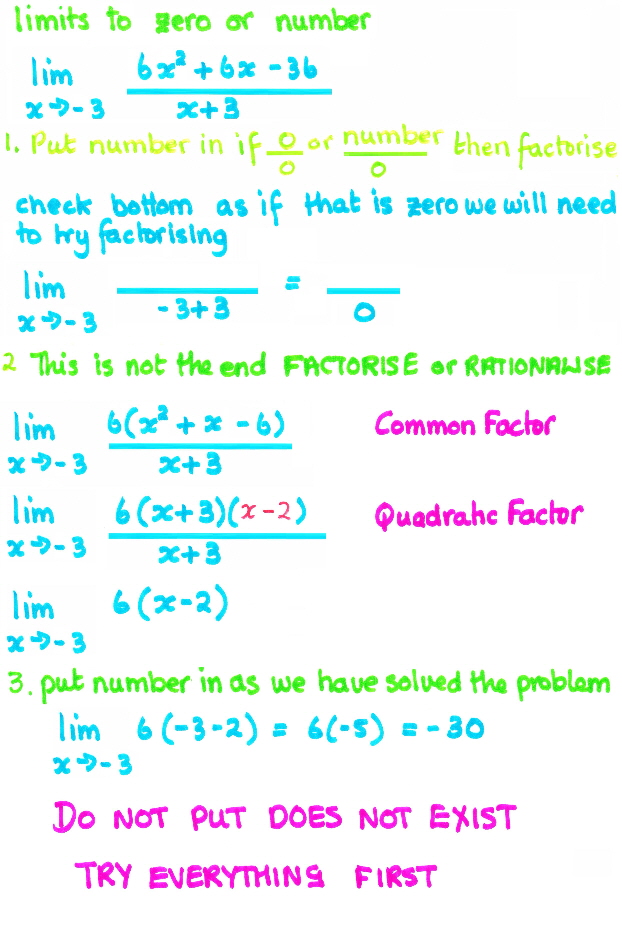 limits to zero or number
lim x→-3 (6x² + 6x - 36)/(x+3)
1. Put number in if 0/0 or number/0 then factorise
check bottom as if that is zero we will need
to try factorising
lim x→-3 ___/(-3+3) = ___/0
2 This is not the end FACTORISE or RATIONALISE
lim x→-3 6(x² + x - 6)/(x+3) Common Factor
lim x→-3 6(x+3)(x-2)/(x+3) Quadratic Factor
lim x→-3 6(x-2)
3. put number in as we have solved the problem
lim x→-3 6(-3-2) = 6(-5) = -30
DO NOT PUT DOES NOT EXIST
TRY EVERYTHING FIRST